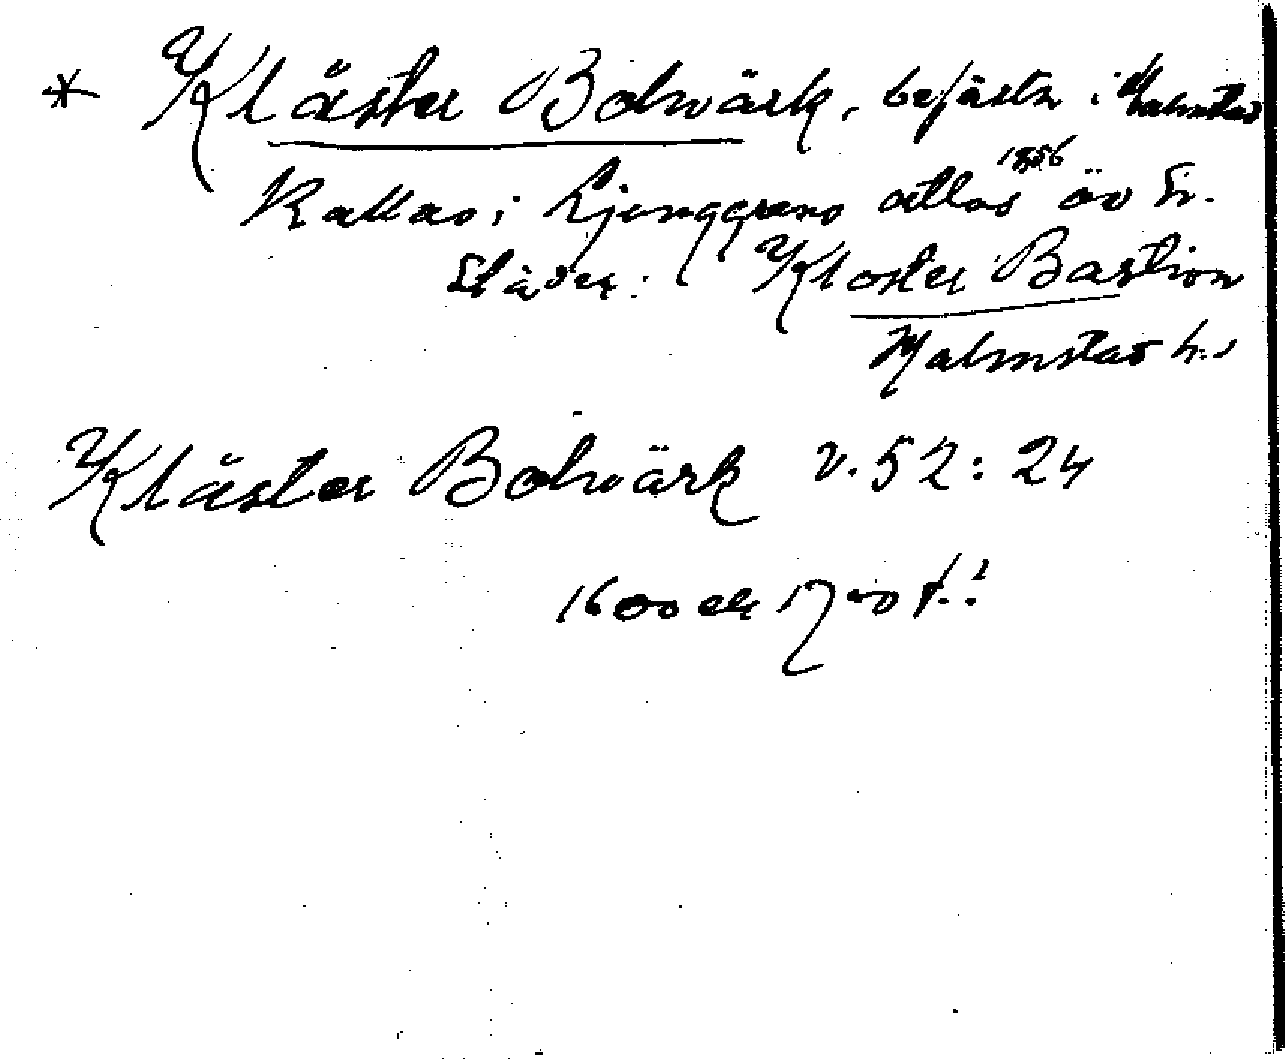 * Klåster Bolwärk, befästn i Halmstad
Kallas i Ljunggrens atlas 1856 öv Sv.
Städer: Kloster Bastion
Halmstad h.
Klåster Bolwärk v. 52: 24
1600 el 1700 t.?